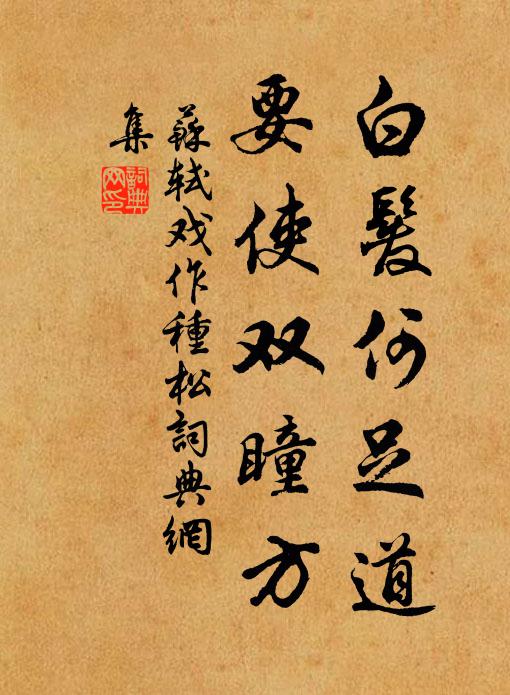 白髮何足道
要使双瞳方
蘇軾戏作種松詞典網
集
詞典网印